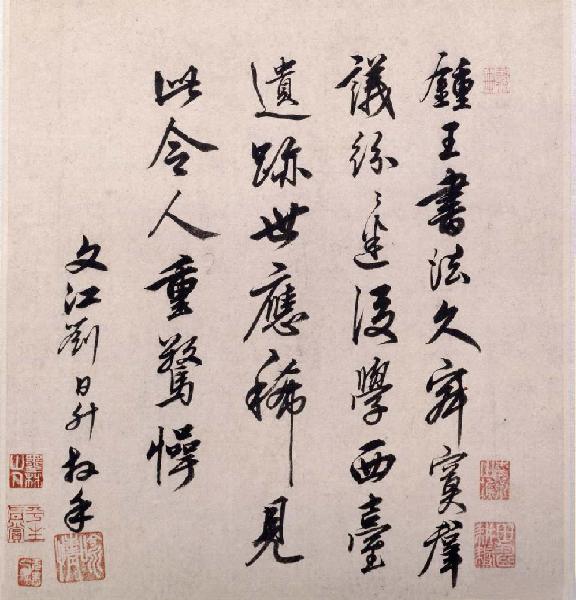 鍾王書法久寂寞羣
議紛〻迷後學西臺
遺跡世應稀見
此令人重驚愕
文江劉日升拜手